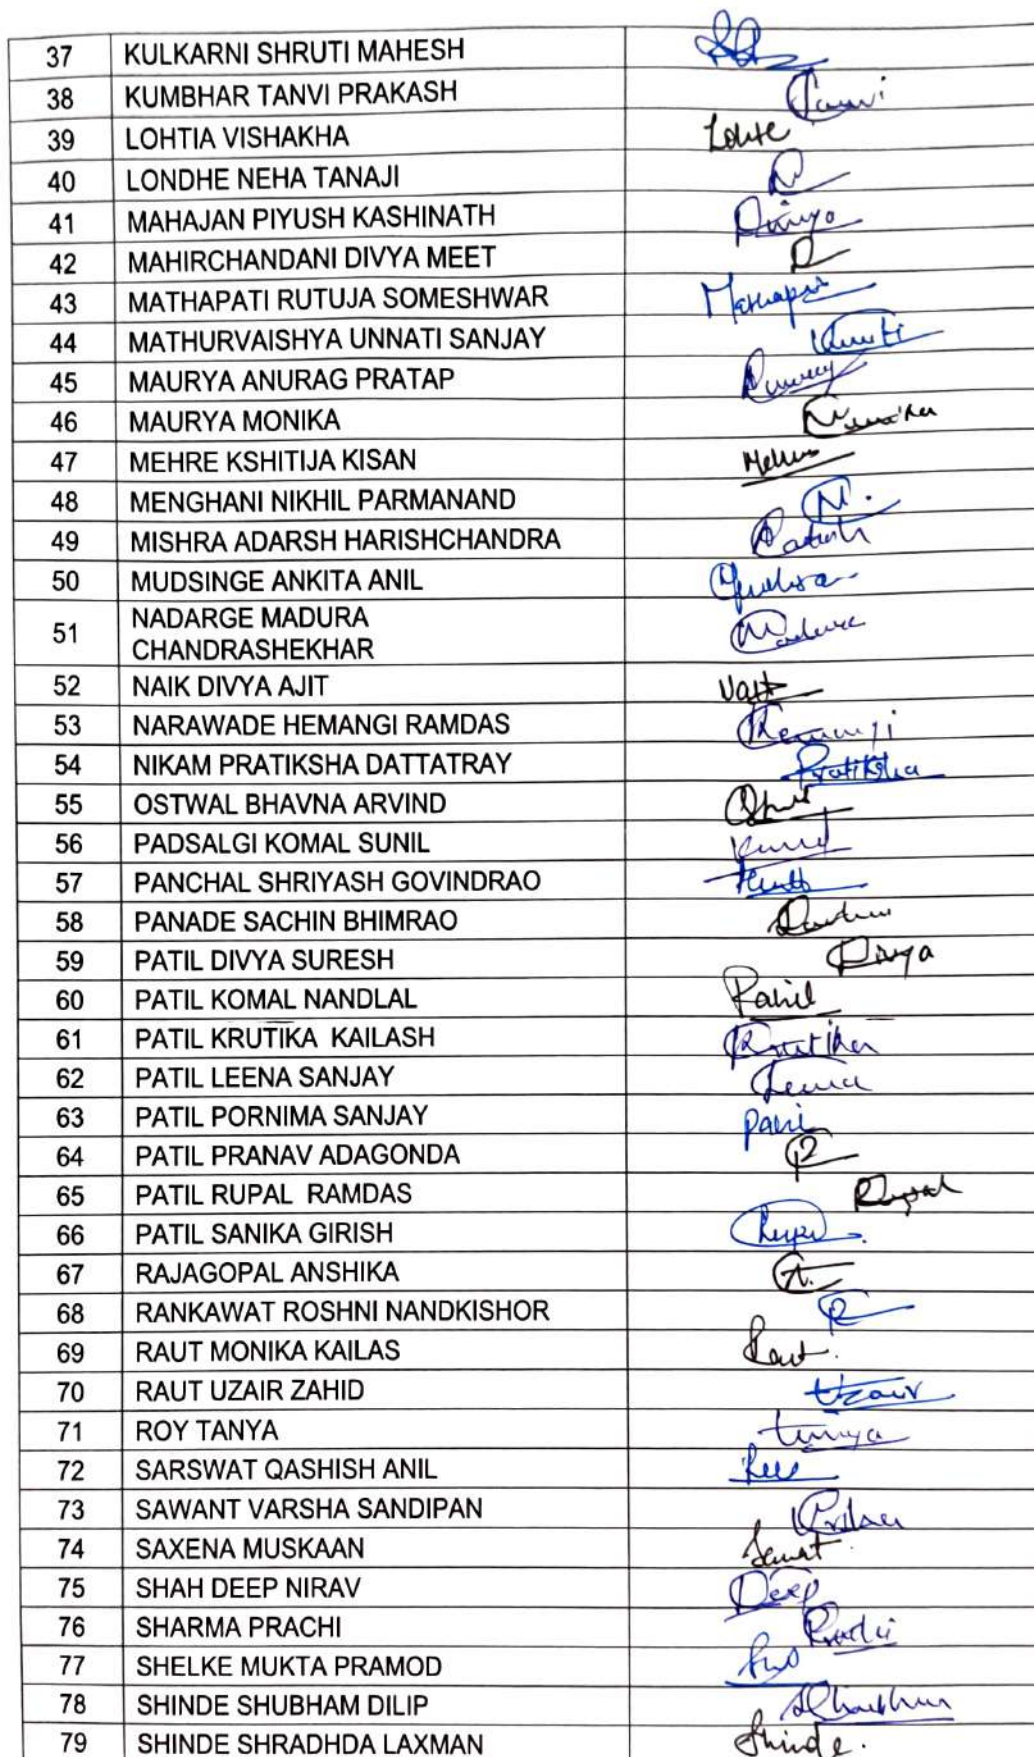 37 KULKARNI SHRUTI MAHESH
38 KUMBHAR TANVI PRAKASH Tanvi
39 LOHTIA VISHAKHA
40 LONDHE NEHA TANAJI
41 MAHAJAN PIYUSH KASHINATH
42 MAHIRCHANDANI DIVYA MEET
43 MATHAPATI RUTUJA SOMESHWAR
44 MATHURVAISHYA UNNATI SANJAY
45 MAURYA ANURAG PRATAP
46 MAURYA MONIKA
47 MEHRE KSHITIJA KISAN
48 MENGHANI NIKHIL PARMANAND N.
49 MISHRA ADARSH HARISHCHANDRA
50 MUDSINGE ANKITA ANIL
51 NADARGE MADURA
CHANDRASHEKHAR
52 NAIK DIVYA AJIT
53 NARAWADE HEMANGI RAMDAS
54 NIKAM PRATIKSHA DATTATRAY Pratiksha
55 OSTWAL BHAVNA ARVIND
56 PADSALGI KOMAL SUNIL
57 PANCHAL SHRIYASH GOVINDRAO
58 PANADE SACHIN BHIMRAO
59 PATIL DIVYA SURESH Divya
60 PATIL KOMAL NANDLAL Patil
61 PATIL KRUTIKA KAILASH Krutika
62 PATIL LEENA SANJAY
63 PATIL PORNIMA SANJAY
64 PATIL PRANAV ADAGONDA
65 PATIL RUPAL RAMDAS Rupal
66 PATIL SANIKA GIRISH
67 RAJAGOPAL ANSHIKA
68 RANKAWAT ROSHNI NANDKISHOR
69 RAUT MONIKA KAILAS Raut.
70 RAUT UZAIR ZAHID Uzair
71 ROY TANYA Tanya
72 SARSWAT QASHISH ANIL
73 SAWANT VARSHA SANDIPAN
74 SAXENA MUSKAAN
75 SHAH DEEP NIRAV Deep
76 SHARMA PRACHI
77 SHELKE MUKTA PRAMOD
78 SHINDE SHUBHAM DILIP
79 SHINDE SHRADHDA LAXMAN Shinde.